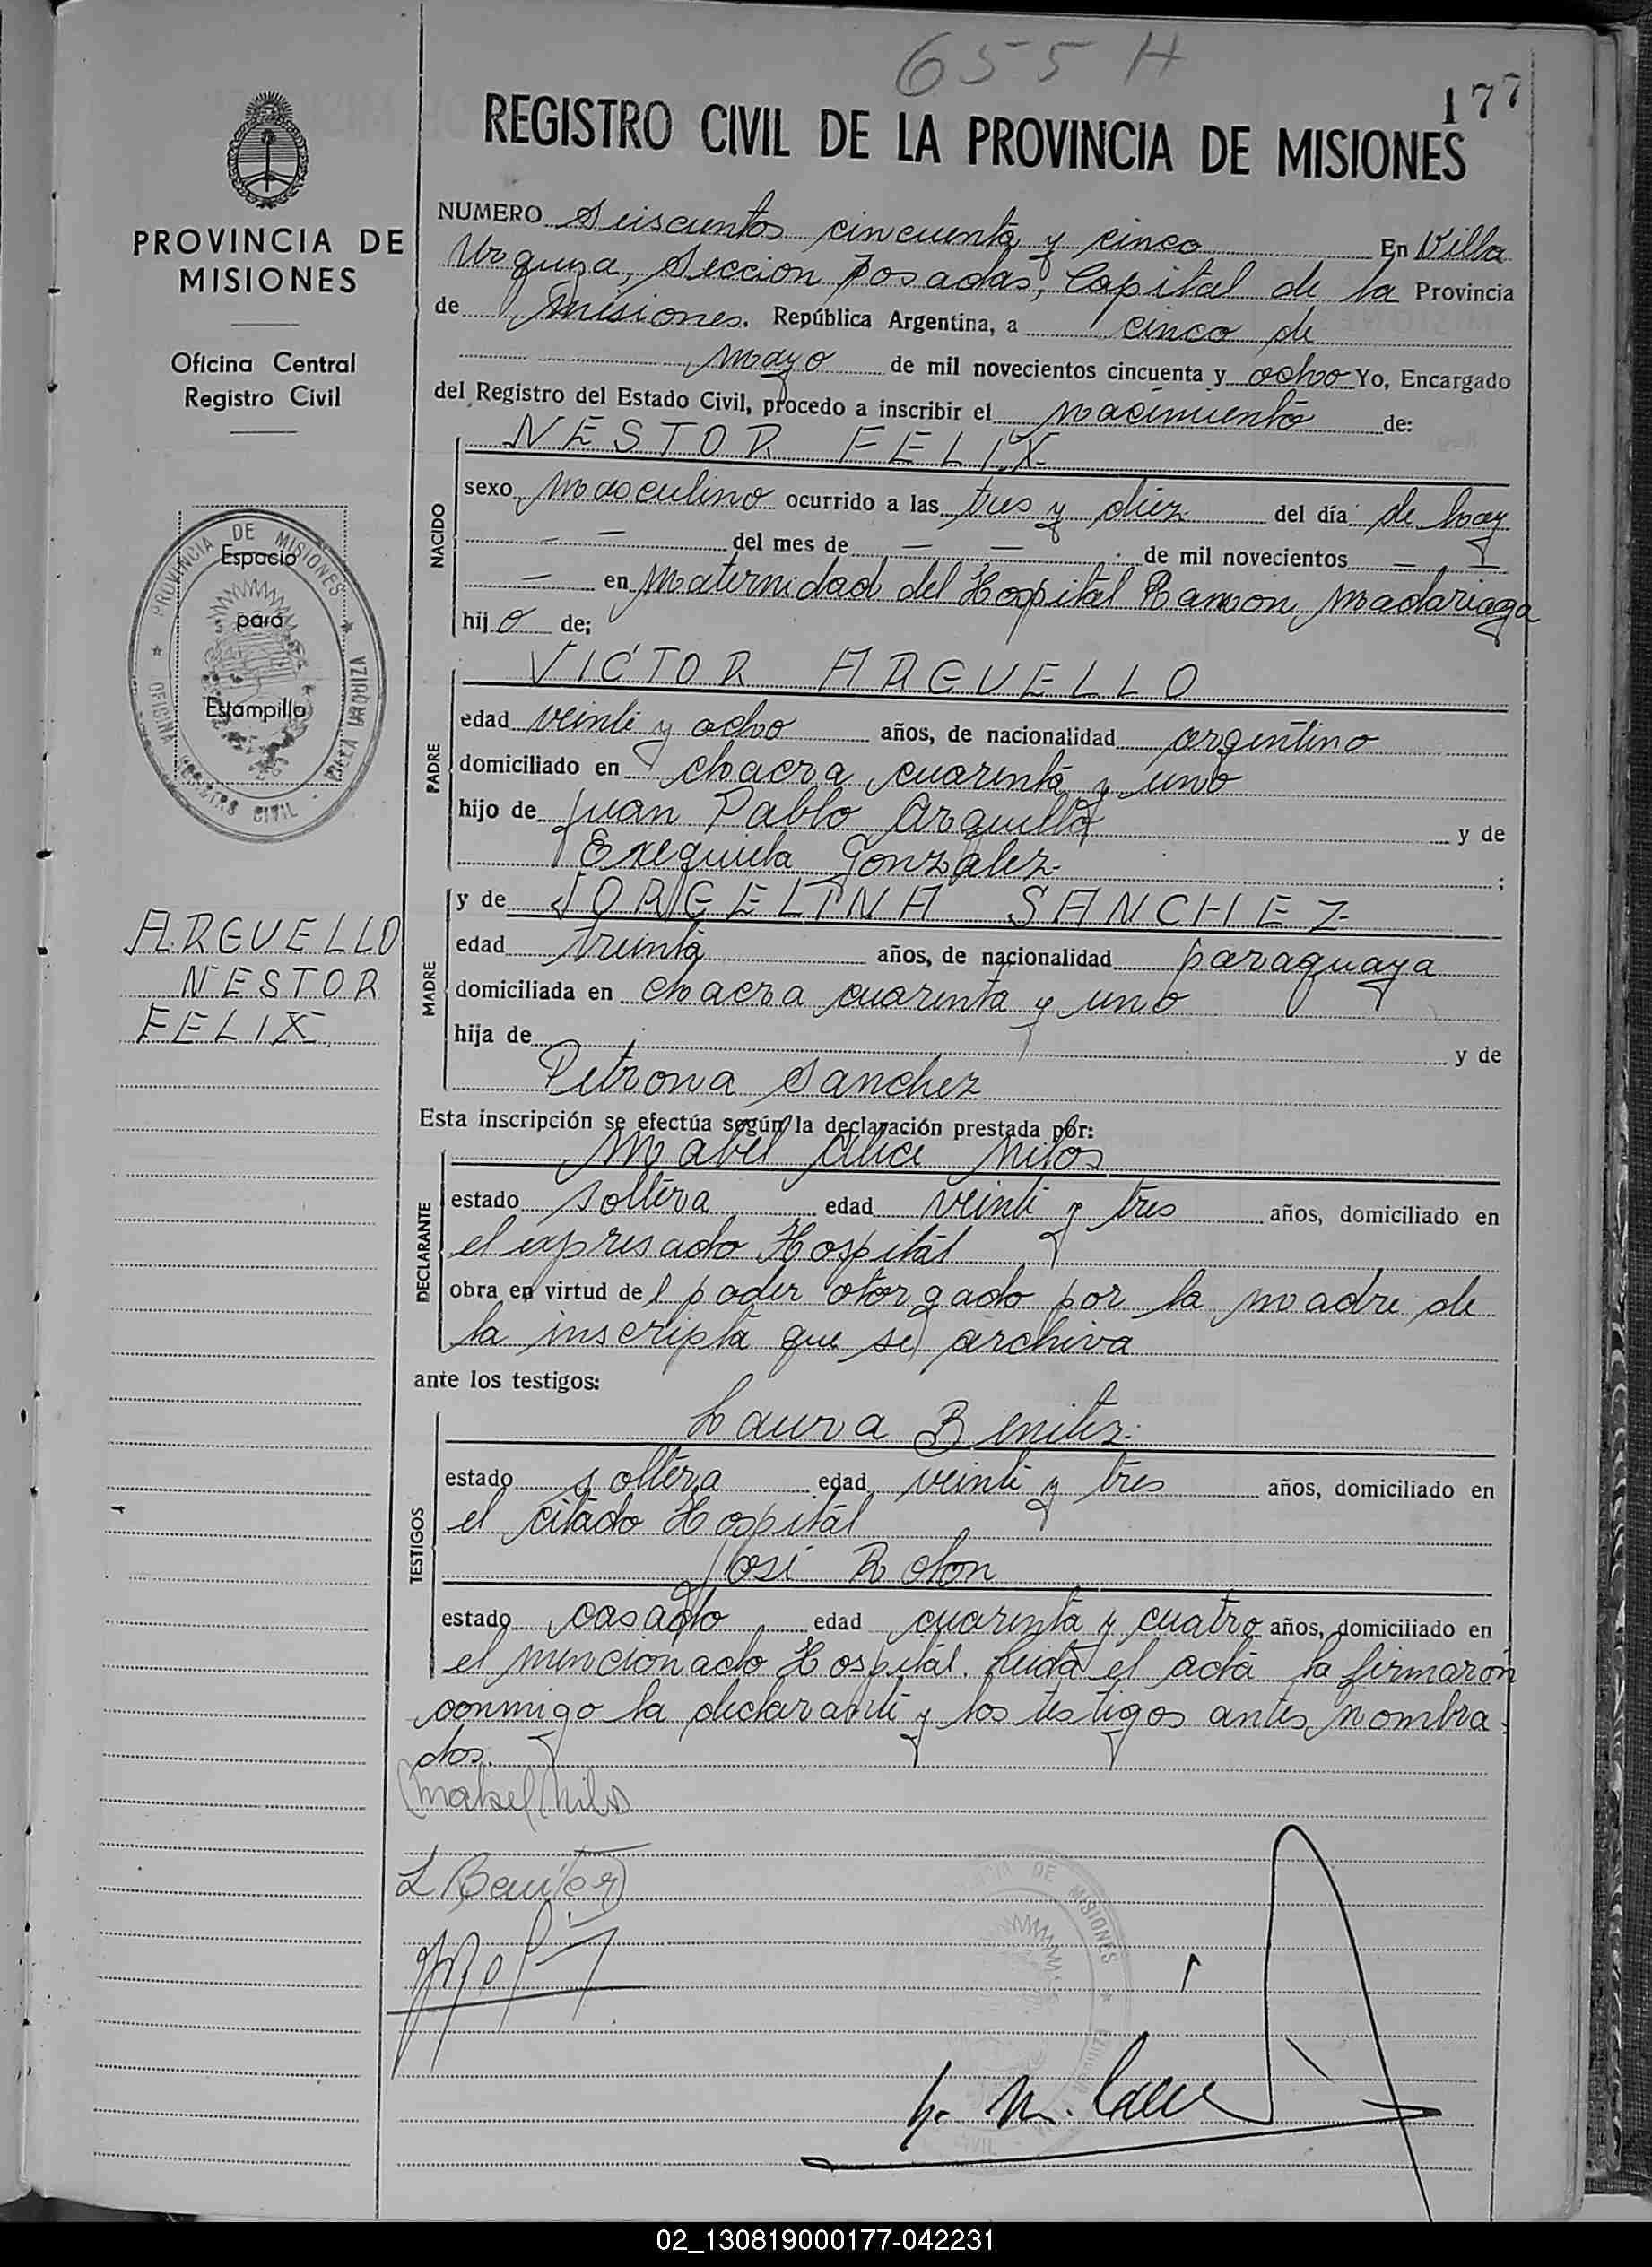 655 H
177
REGISTRO CIVIL DE LA PROVINCIA DE MISIONES
PROVINCIA DE
MISIONES
Oficina Central
Registro Civil
PROVINCIA DE MISIONES
Espacio
para
Estampilla
OFICINA REGISTRO CIVIL - VILLA URQUIZA
ARGUELLO
NESTOR
FELIX
NUMERO Seiscientos cincuenta y cinco En Villa
Urquiza, Seccion Posadas, Capital de la Provincia
de Misiones. República Argentina, a cinco de
Mayo de mil novecientos cincuenta y ocho Yo, Encargado
del Registro del Estado Civil, procedo a inscribir el nacimiento de:
NACIDO
NESTOR FELIX
sexo masculino ocurrido a las tres y diez del día de hoy
— — del mes de — — de mil novecientos —
— en Maternidad del Hospital Ramon Madariaga
hijo de;
PADRE
VICTOR ARGUELLO
edad veinti y ocho años, de nacionalidad argentino
domiciliado en chacra cuarenta y uno
hijo de Juan Pablo Arguello y de
Exequiela Gonzalez ;
MADRE
y de JORGELINA SANCHEZ
edad treinta años, de nacionalidad paraguaya
domiciliada en chacra cuarenta y uno
hija de y de
Petrona Sanchez
Esta inscripción se efectúa según la declaración prestada por:
DECLARANTE
Mabel Alice Nilos
estado soltera edad veinti y tres años, domiciliado en
el expresado Hospital
obra en virtud del poder otorgado por la madre de
la inscripta que se archiva
ante los testigos:
TESTIGOS
Laura Benitez
estado soltera edad veinti y tres años, domiciliado en
el citado Hospital
José Rolon
estado casado edad cuarenta y cuatro años, domiciliado en
el mencionado Hospital. Leida el acta la firmaron
conmigo la declarante y los testigos antes nombra-
dos.
L Benitez
02_130819000177-042231